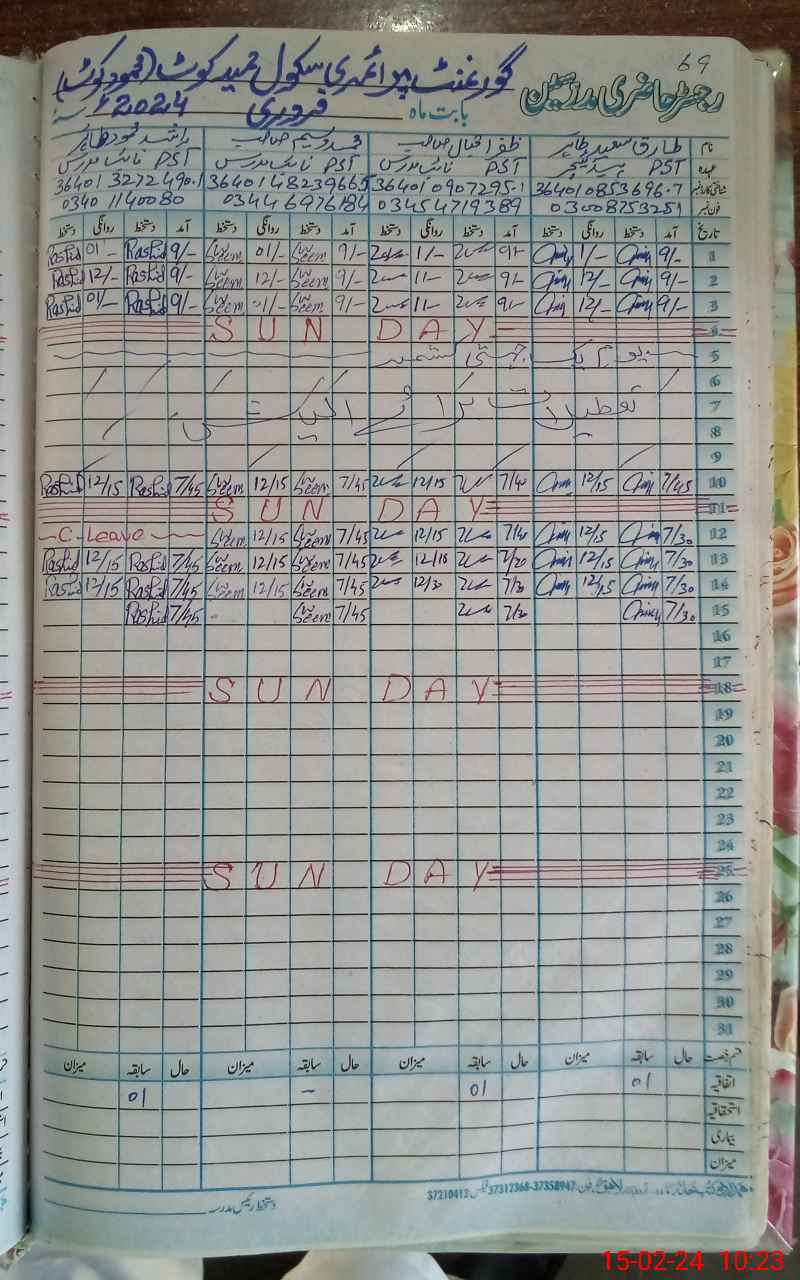 69
رجسٹر حاضری مدرسین
گورنمنٹ پرائمری سکول حمید کوٹ (محمود کوٹ)
بابت ماہ فروری 2024ء
نام طارق سعید طاہر ظفر اقبال صاحب محمد وسیم صاحب راشد محمود طاہر
عہدہ PST ہیڈ ٹیچر PST PST PST
364010853696-7 364010907295-1 3640148239665 364013272490-1
فون نمبر 03008753251 03454719389 03446976184 03401140080
تاریخ آمد دستخط روانگی دستخط آمد دستخط روانگی دستخط آمد دستخط روانگی دستخط آمد دستخط روانگی دستخط
1 9/- 1/- 9/- 1/- 9/- Waseem 01/- Waseem 9/- Rashid 01/- Rashid
2 9/- 12/- 9/- 11- 9/- Waseem 12/- Waseem 9/- Rashid 12/- Rashid
3 9/- 12/- 9/- 11- 9/- Waseem 01/- Waseem 9/- Rashid 01/- Rashid
4 SUN DAY
5 یوم یک جہتی کشمیر
6
7 تعطیلات برائے الیکشن
8
9
10 7/45 12/15 7/40 12/15 7/45 Waseem 12/15 Waseem 7/45 Rashid 12/15 Rashid
11 SUN DAY
12 7/30 12/15 7/40 12/15 7/45 Waseem 12/15 Waseem C-Leave
13 7/30 12/15 7/20 12/15 7/45 Waseem 12/15 Waseem 7/45 Rashid 12/15 Rashid
14 7/30 12/15 7/30 12/30 7/45 Waseem 12/15 Waseem 7/45 Rashid 12/15 Rashid
15 7/30 7/30 7/45 Waseem 7/45 Rashid
16
17
18 SUN DAY
19
20
21
22
23
24
25 SUN DAY
26
27
28
29
30
31
قسم رخصت حال سابقہ میزان حال سابقہ میزان حال سابقہ میزان حال سابقہ میزان
اتفاقیہ 01 01 - 01
استحقاقیہ
بیماری
میزان
37210412 فیکس 37312368-37358947 فون
دستخط رئیس مدرسہ
15-02-24 10:23